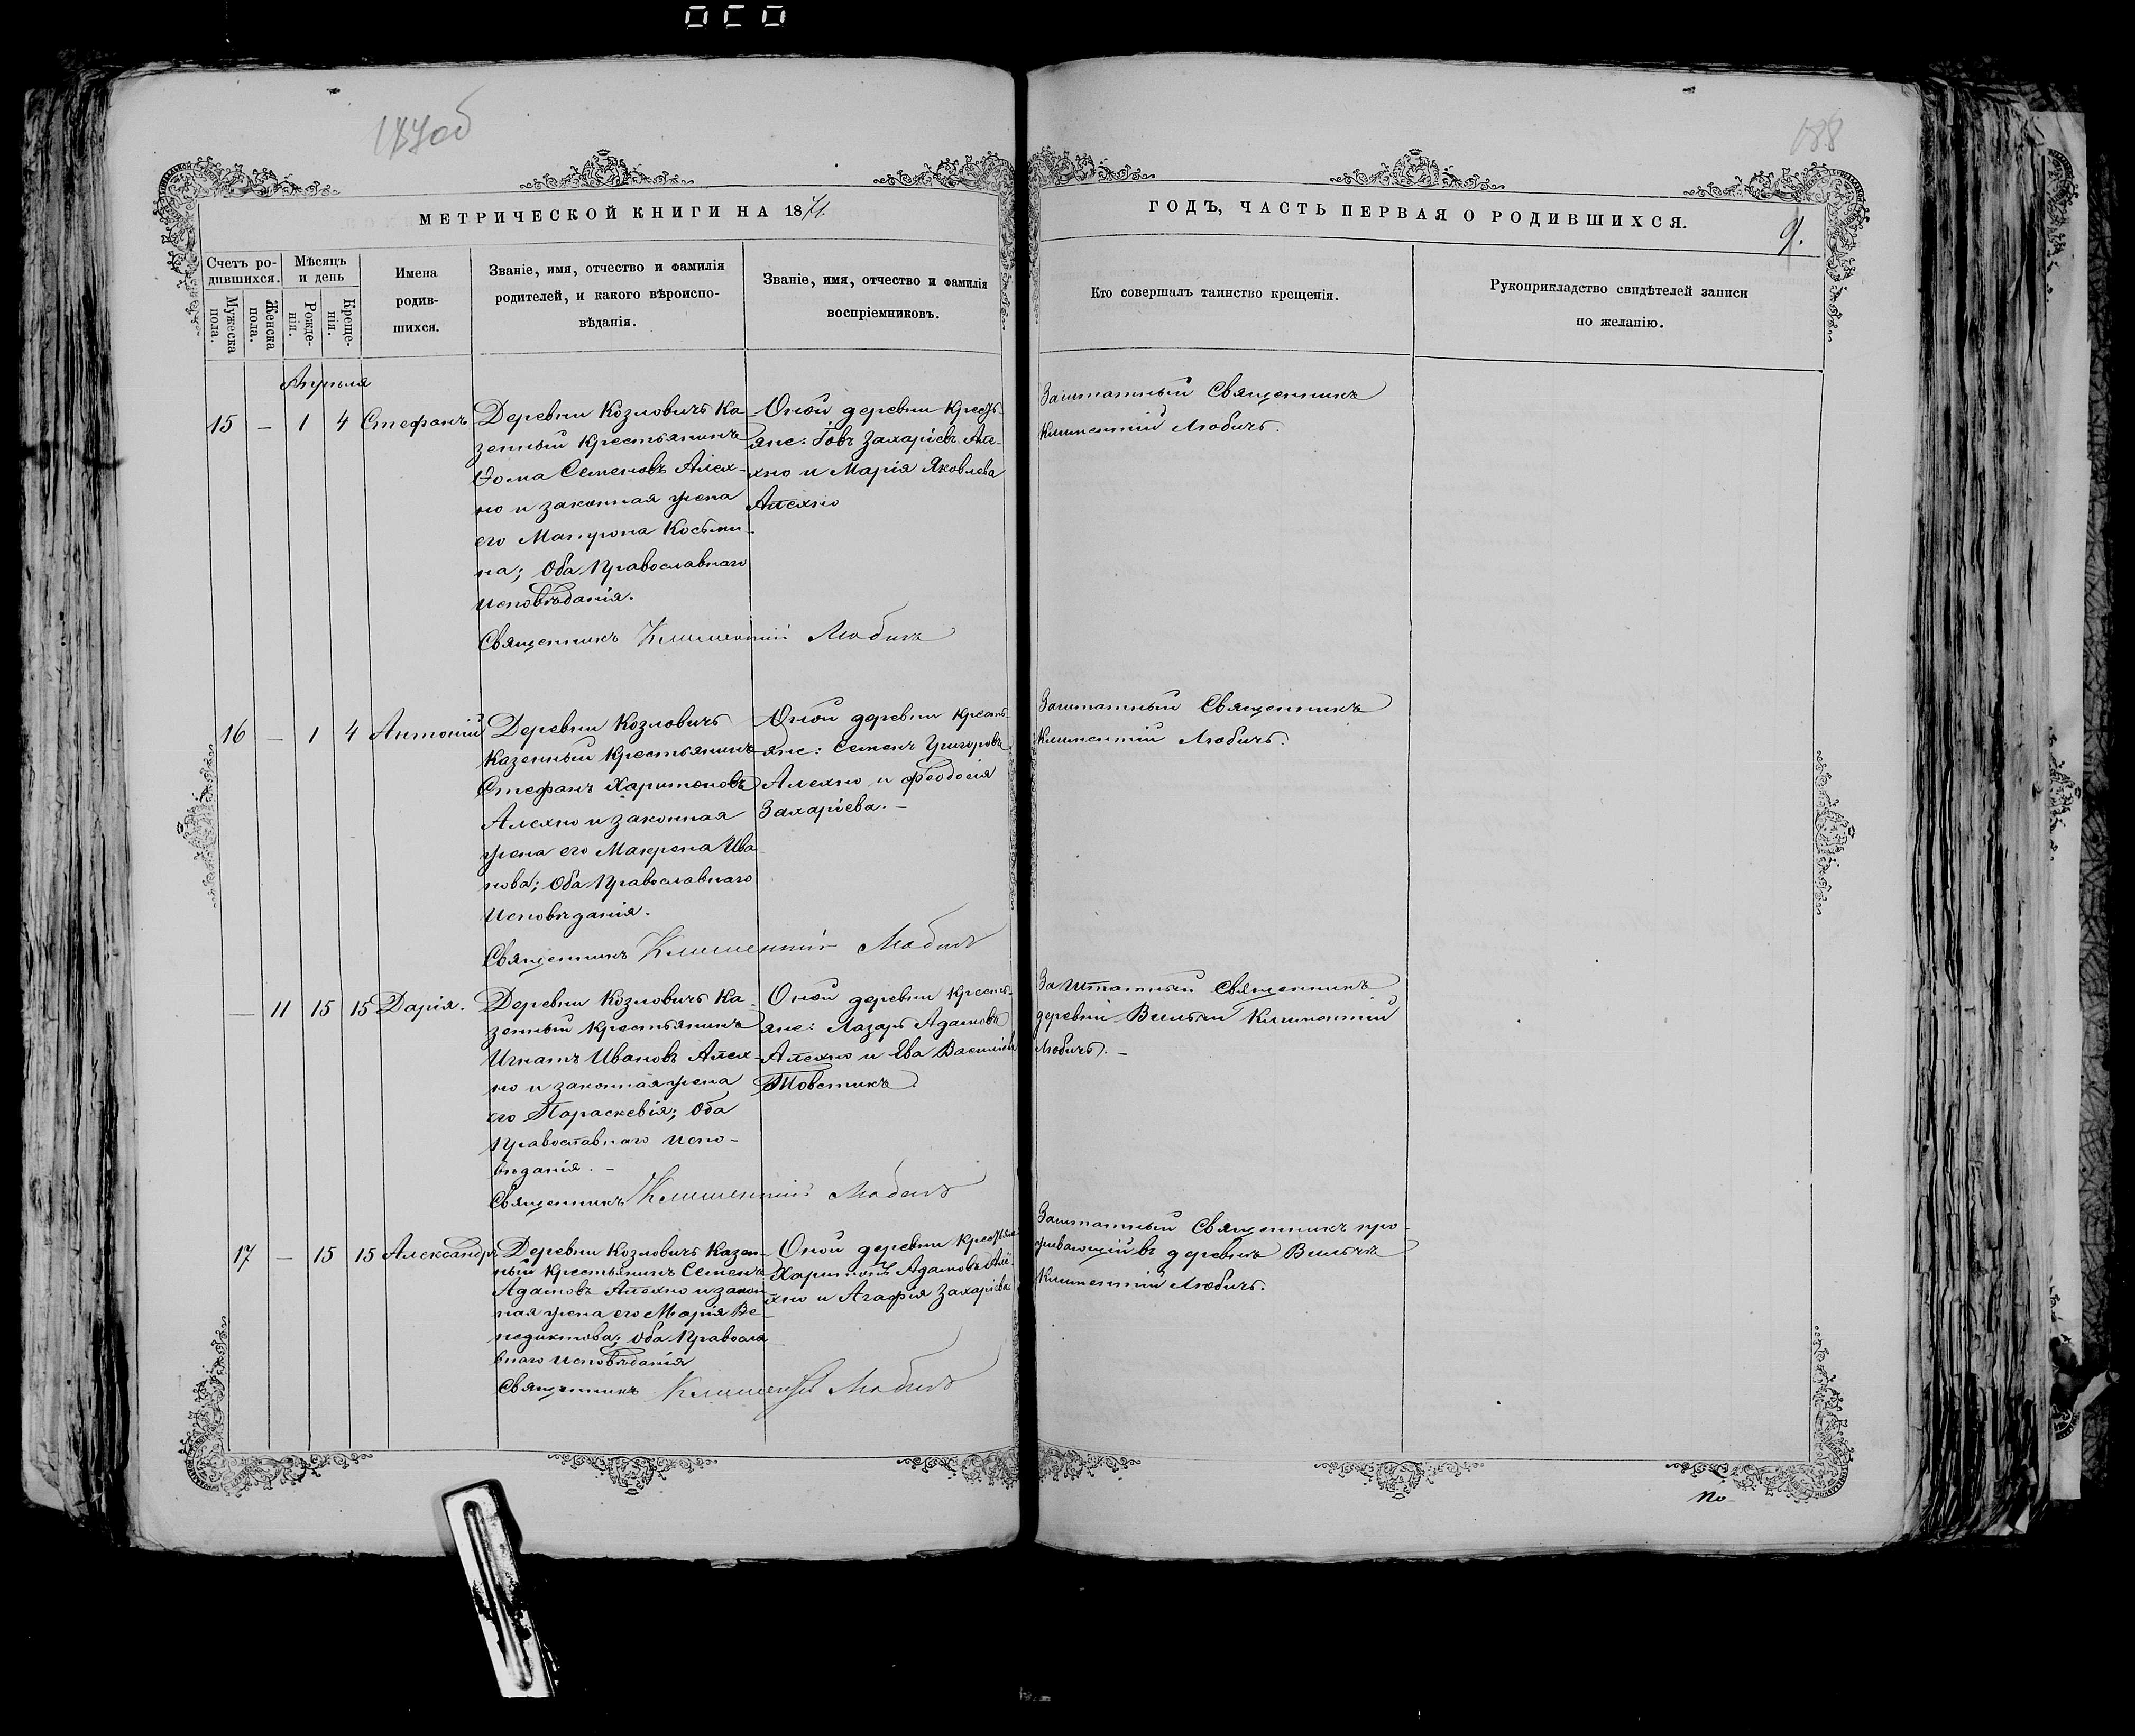 187об
188
МЕТРИЧЕСКОЙ КНИГИ НА 1871
ГОДЪ, ЧАСТЬ ПЕРВАЯ О РОДИВШИХСЯ.
9.
Счетъ родившихся.
Мужеска пола.
Женска пола.
Мѣсяцъ и день
Рожденія.
Крещенія.
Имена
родив-
шихся.
Званіе, имя, отчество и фамилія
родителей, и какого вѣроиспо-
вѣданія.
Званіе, имя, отчество и фамилія
воспріемниковъ.
Кто совершалъ таинство крещенія.
Рукоприкладство свидѣтелей записи
по желанію.
Апрѣля
15 — 1 4 Стефанъ
Деревни Козловичъ Ка-
зенный крестьянинъ
Ѳома Семеновъ Алех-
но и законная жена
его Матрона Косьми-
на; оба Православнаго
исповѣданія.
Священникъ Климентій Любичъ
Оной деревни кресть-
яне: Іовъ Захаріевъ Але-
хно и Марія Яковлева
Алехно
Заштатный Священникъ
Климентій Любичъ.
16 — 1 4 Антоній
Деревни Козловичъ
Казенный крестьянинъ
Стефанъ Харитоновъ
Алехно и законная
жена его Макрена Ива-
нова; оба Православнаго
Исповѣданія.
Священникъ Климентій Любичъ
Оной деревни кресть-
яне: Семенъ Григоровъ
Алехно и Феодосія
Захаріева. —
Заштатный Священникъ
Климентій Любичъ.
— 11 15 15 Дарія.
Деревни Козловичъ Ка-
зенный крестьянинъ
Игнатъ Ивановъ Алех-
но и законная жена
его Параскевія; оба
Православнаго испо-
вѣданія. —
Священникъ Климентій Любичъ
Оной деревни кресть-
яне: Лазарь Адамовъ
Алехно и Ева Василіева
Заштатный Священникъ
деревни Вильчи Климентій
Любичъ. —
17 — 15 15 Александръ
Деревни Козловичъ Казен-
ный крестьянинъ Семенъ
Адамовъ Алехно и закон-
ная жена его Марія Ве-
недиктова; оба Правосла-
внаго исповѣданія
Священникъ Климентій Любичъ
Оной деревни крестьяне
Харитонъ Адамовъ Але-
хно и Агафія Захаріева
Заштатный Священникъ про-
живающій въ деревнѣ Вильчѣ
Климентій Любичъ.
по